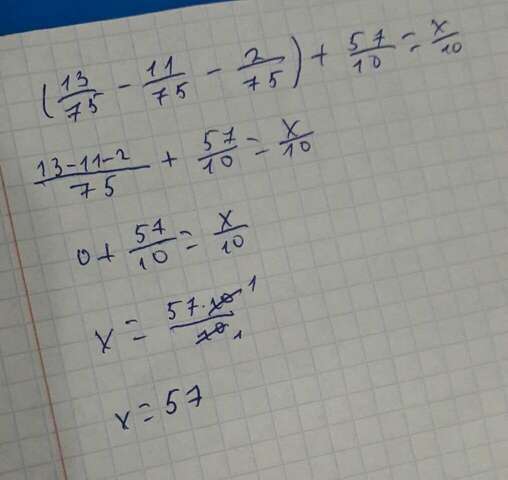 (13/75 - 11/75 - 2/75) + 57/10 = x/10
13-11-2/75 + 57/10 = x/10
0 + 57/10 = x/10
x = 57·10 1/10 1
x = 57